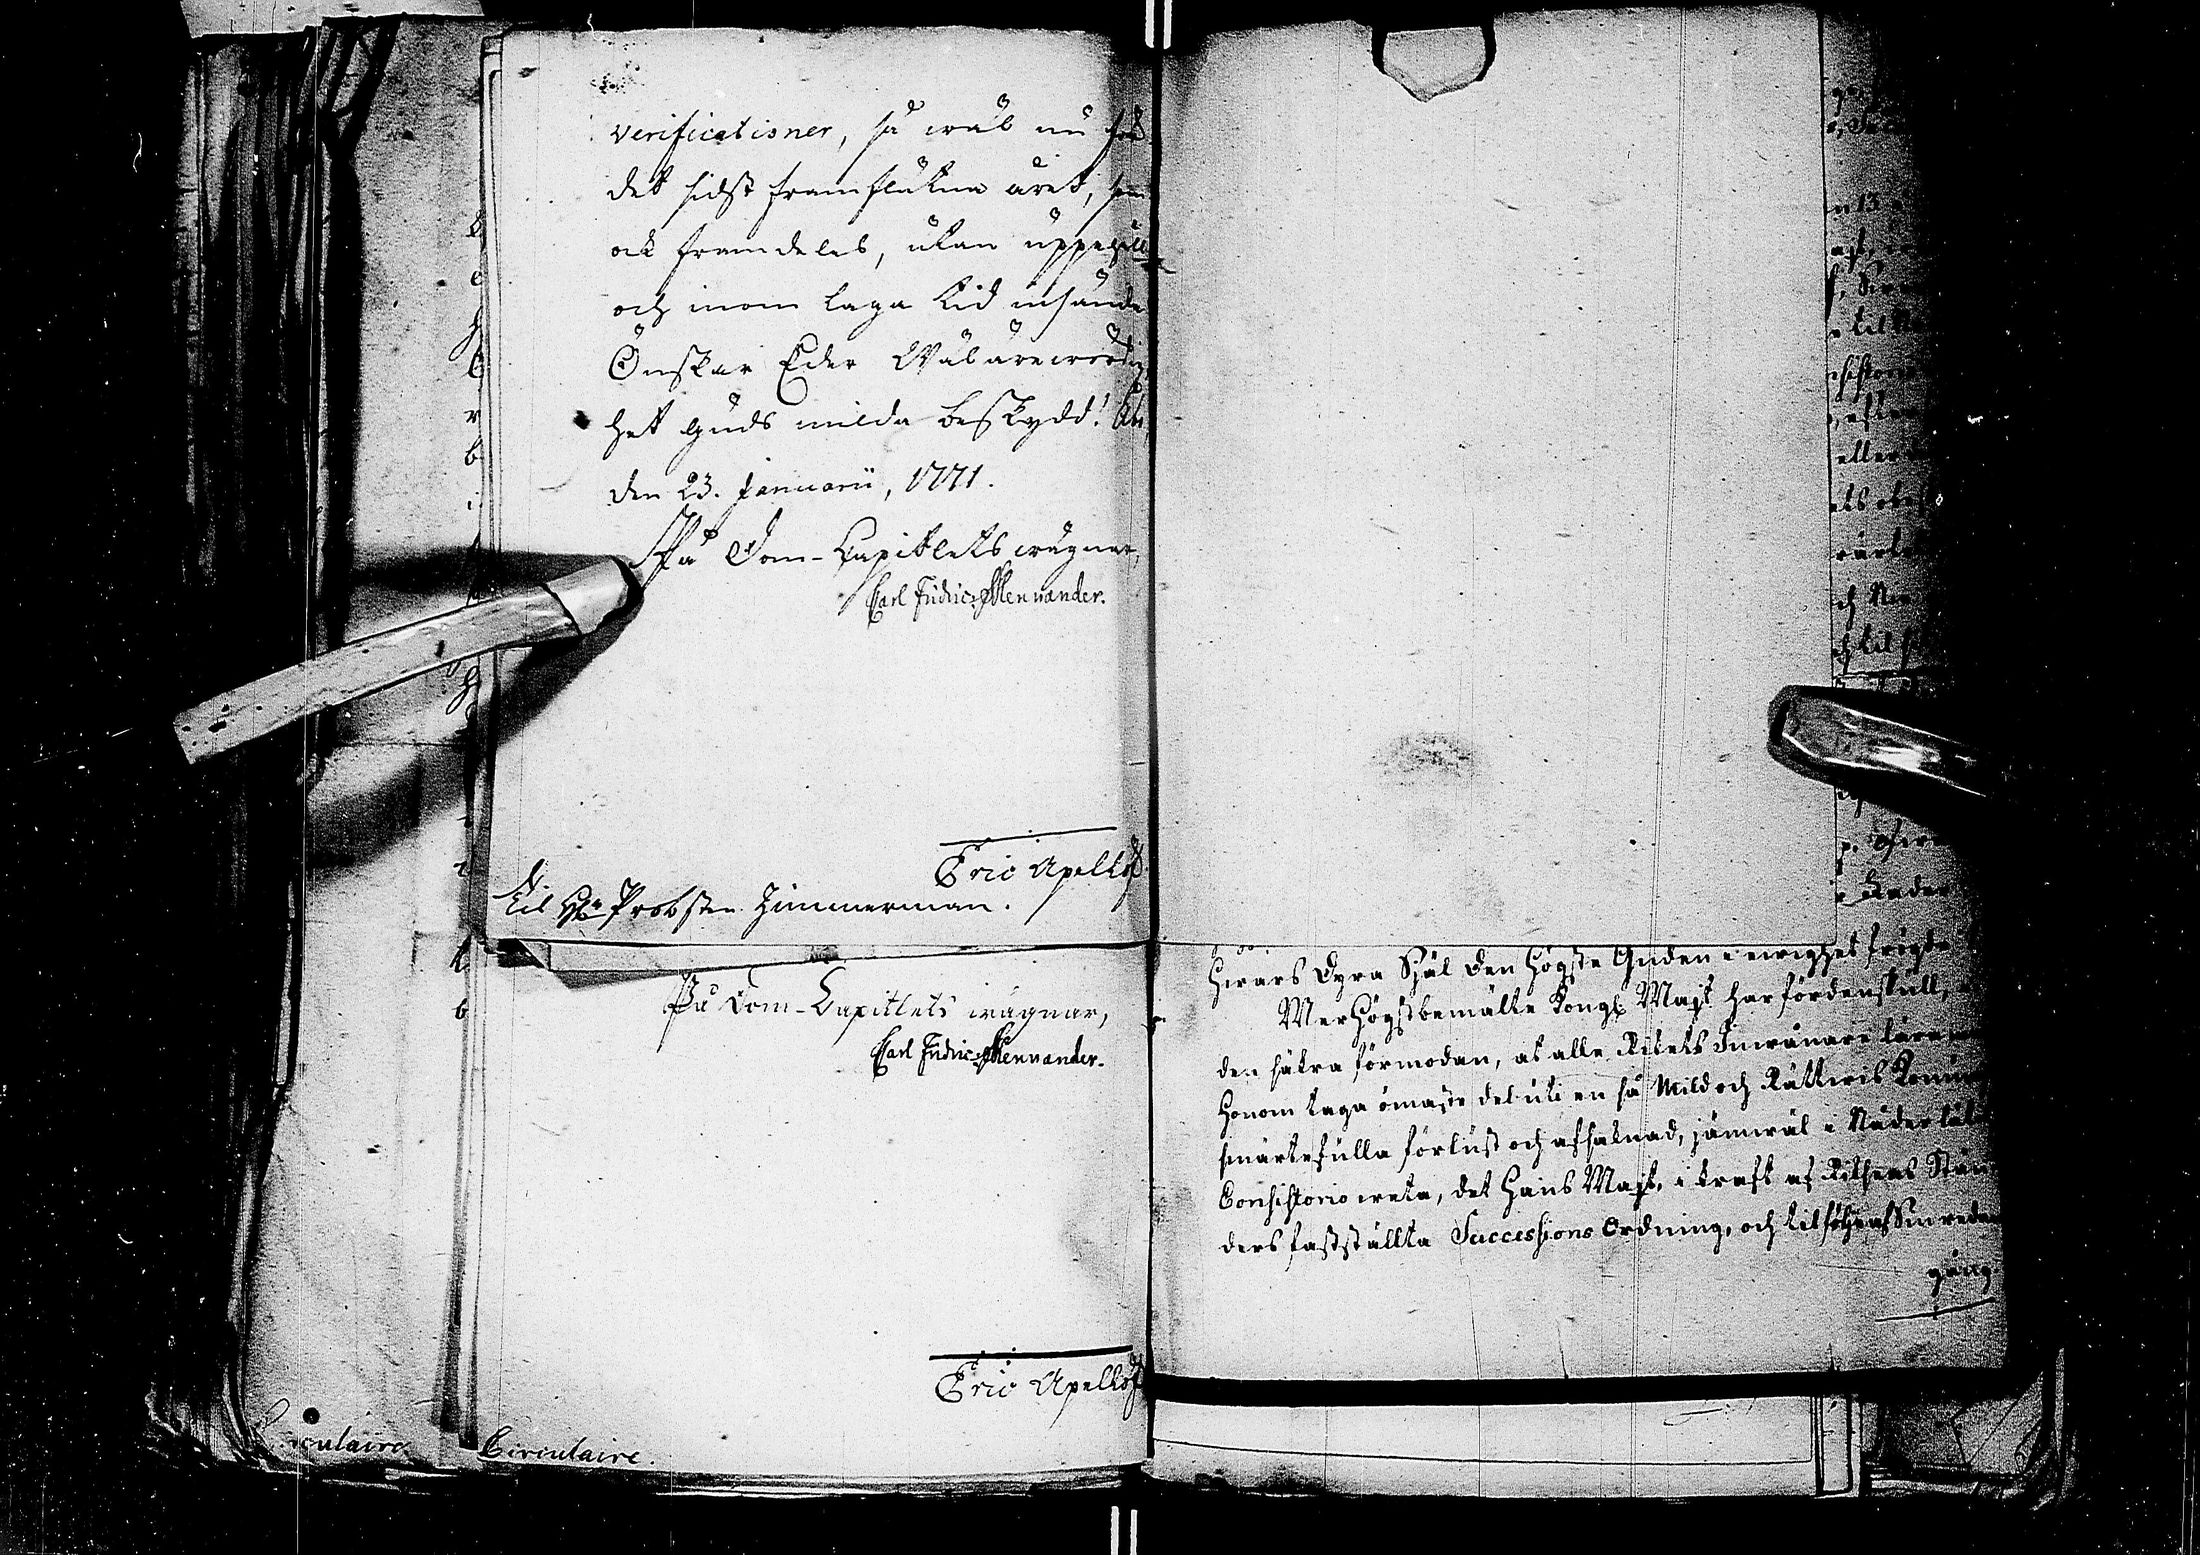 verificationer, så wäl nu för
det sidst framflutna året, som
ock framdeles, utan uppehåll
och inom laga tid insända.
Önskar Eder Wälärewördig
het Guds milda beskydd! Åbo,
den 23. Januarii, 1771.
På Dom-Capitlets wägnar,
Carl Fridric: Mennander.
Eric Apelhof
Til Hr Probsten Zimmerman.
På Dom-Capitlets wägnar,
Carl Fridric: Mennander.
Eric Apelhof
Circulaire.
Circulaire.
Hwars Dyra Själ den Högste Guden i ewighet frögde
Mer Högstbemälte Kongl. Majt har fördenskull, i
den säkra förmodan, at alle Rikets Inwånare lära
Honom taga ömaste del uti en så Mild och Rättwis Konungs
smärtefulla förlust och afsaknad, jämwäl i Nåder låtit
Consistorio weta, det Hans Majt, i kraft af Riksens Stän-
ders fastställta Successions Ordning, och til följe af Sin redan
gång